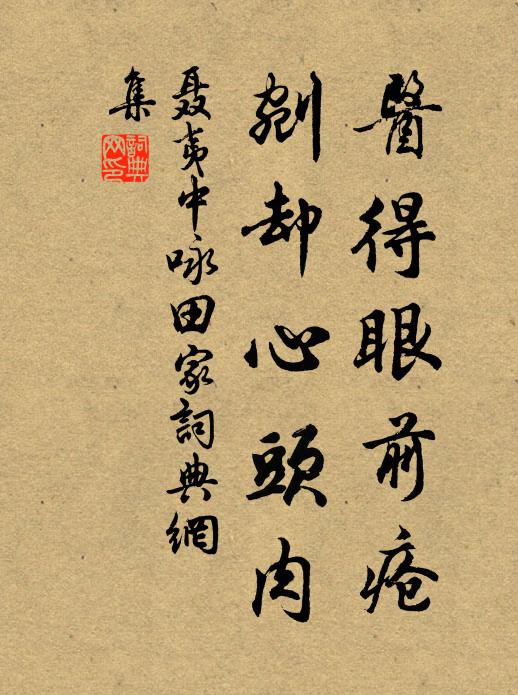 醫得眼前瘡
剜却心頭肉
聶夷中咏田家詞典網
集
詞典網印